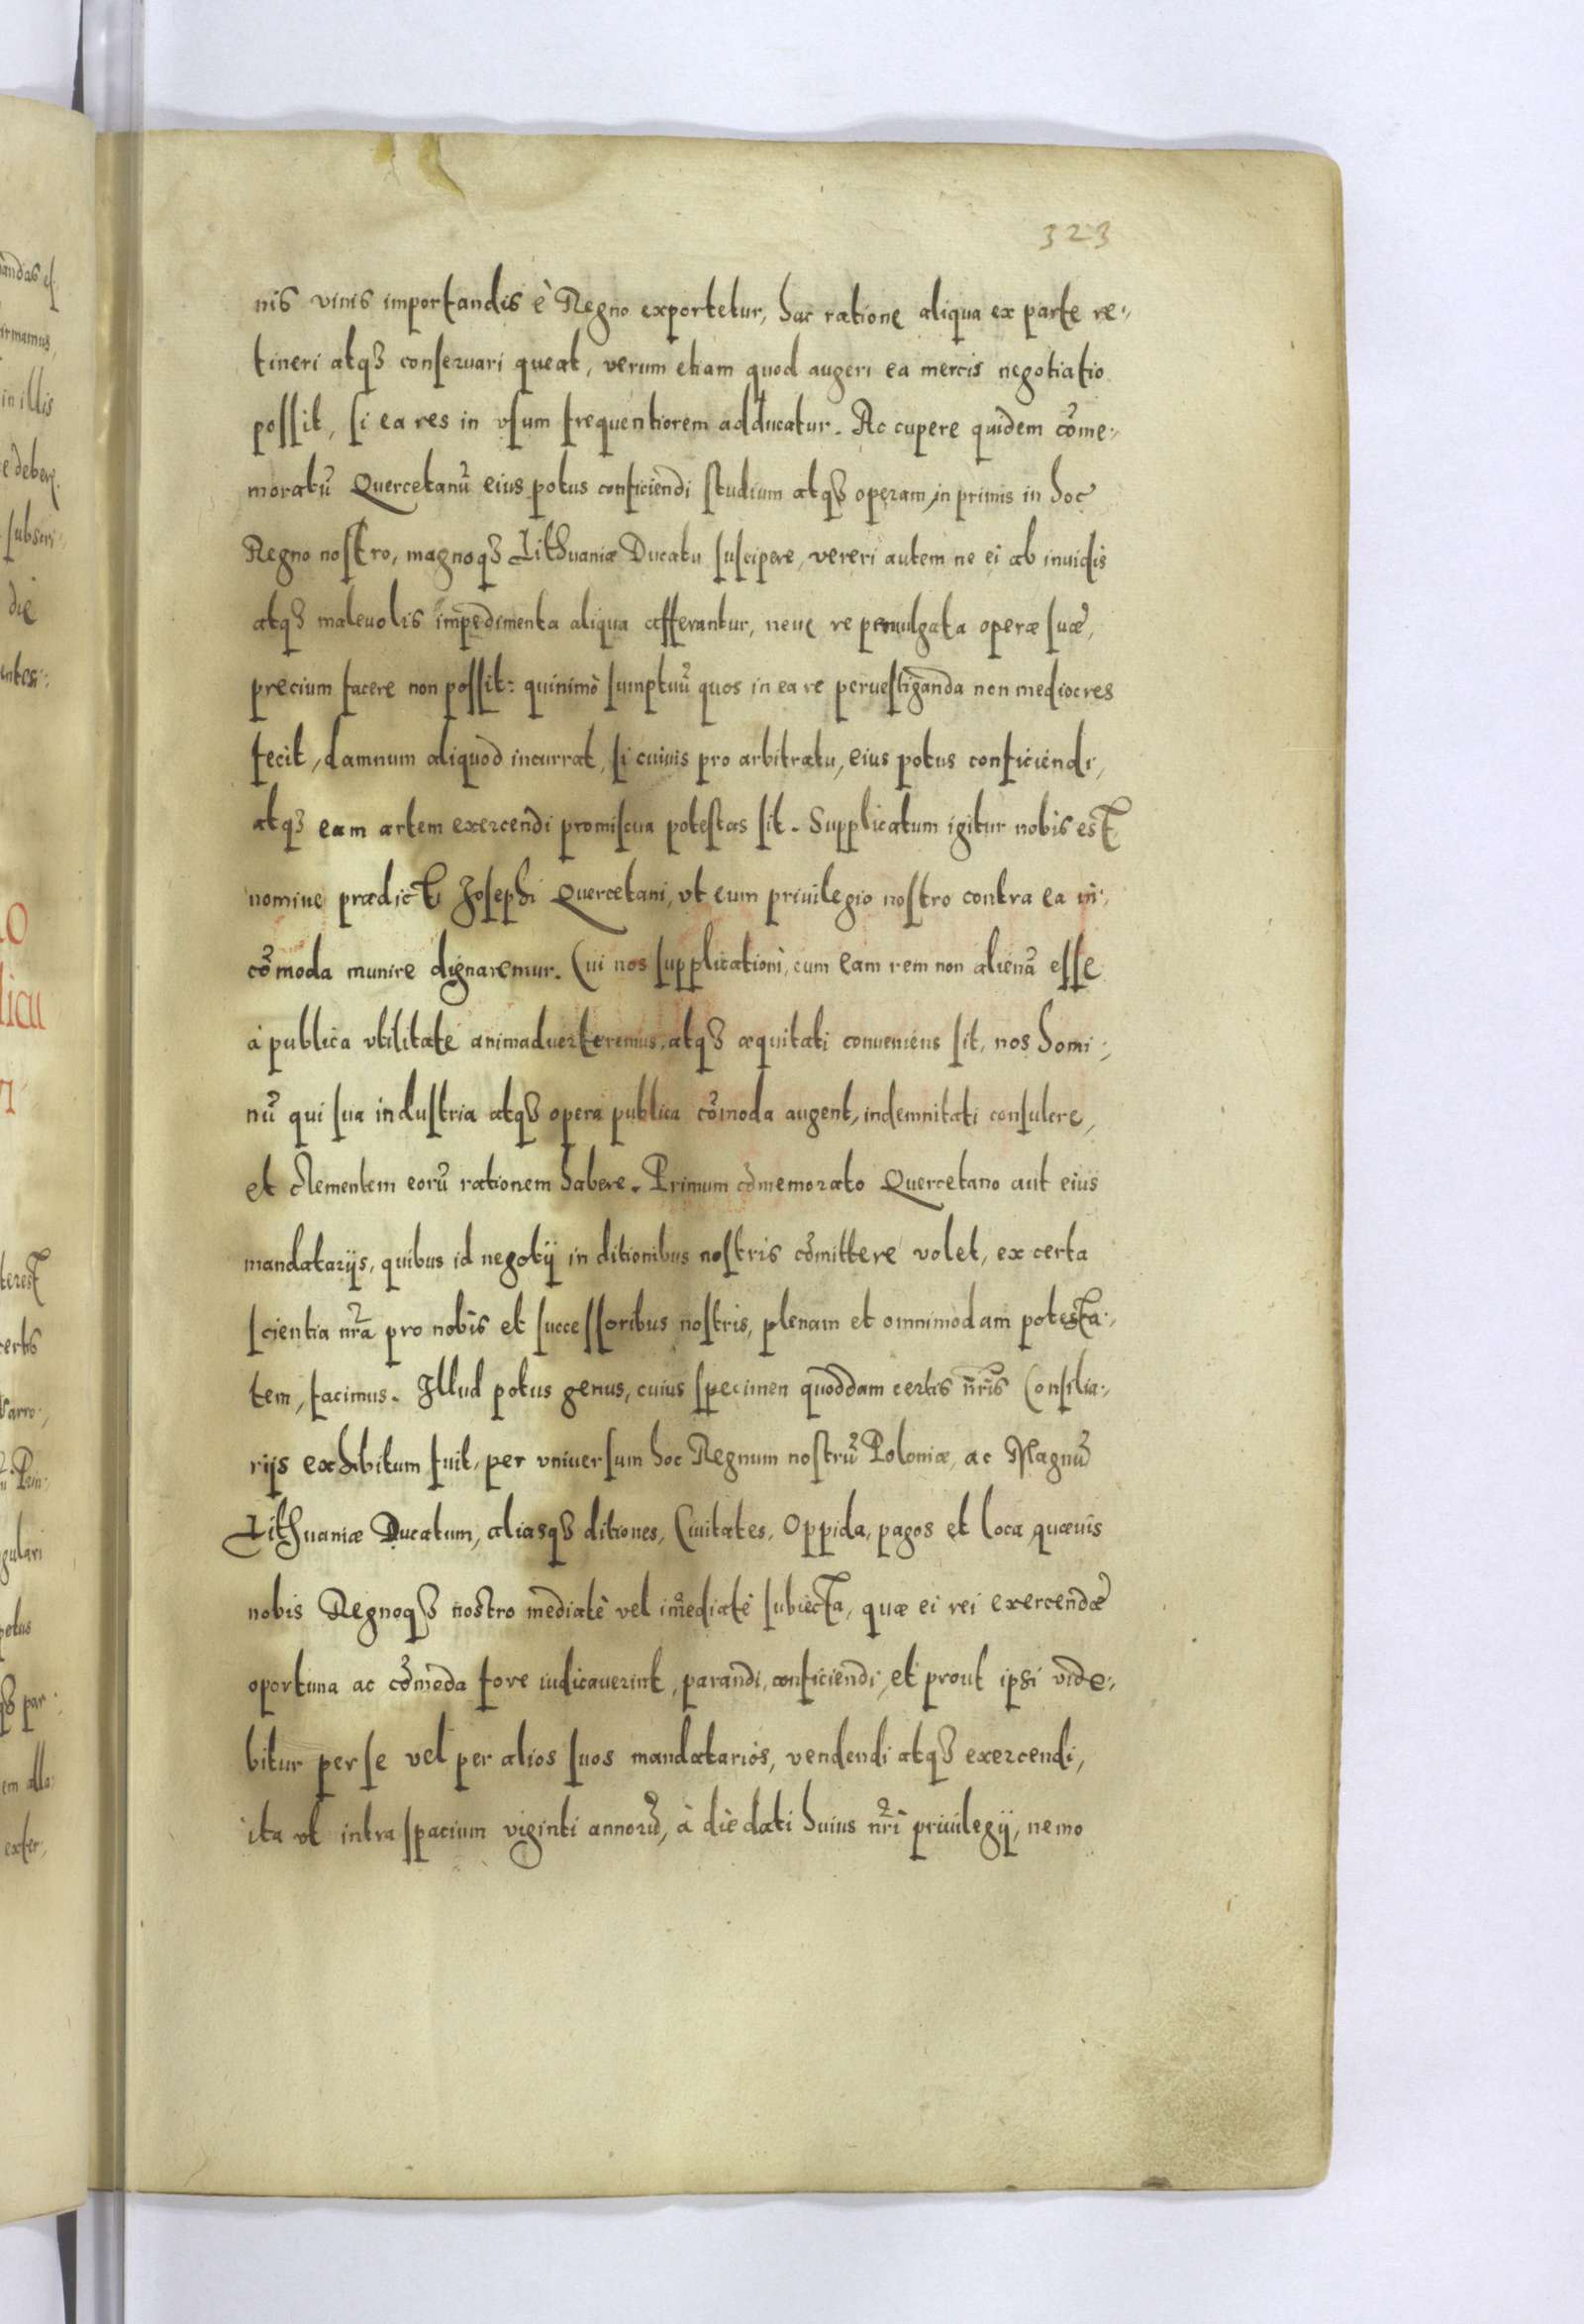 323
nis vinis importandis è Regno exportetur, hac ratione aliqua ex parte re⸗
tineri atqꝫ conſeruari queat, verum etiam quod augeri ea mercis negotiatio
poſſit, ſi ea res in vſum frequentiorem adducatur. Ac cupere quidem cõme⸗
moratũ Quercetanũ eius potus conficiendi ſtudium atqꝫ operam, in primis in hoc
Regno noſtro, magnoqꝫ Lithuaniæ Ducatu ſuſcipere, vereri autem ne ei ab inuidis
atqꝫ maleuolis impedimenta aliqua afferantur, neue re peruulgata operæ ſuæ,
precium facere non poſſit: quinimò ſumptuũ quos in ea re perueſtiganda non mediocres
fecit, damnum aliquod incurrat, ſi cuiuis pro arbitratu, eius potus conficiendi,
atqꝫ eam artem exercendi promiſcua poteſtas ſit. Supplicatum igitur nobis est
nomine prædicti Joſephi Quercetani, vt eum priuilegio noſtro contra ea in⸗
cõmoda munire dignaremur. Cui nos ſupplicationi, cum eam rem non alienã eſſe
à publica vtilitate animaduerteremus, atqꝫ æquitati conueniens ſit, nos homi⸗
nũ qui ſua induſtria atqꝫ opera publica cõmoda augent, indemnitati conſulere,
et clementem eorũ rationem habere. Primum cõmemorato Quercetano aut eius
mandatarijs, quibus id negotij in ditionibus noſtris cõmittere volet, ex certa
ſcientia nr̃a pro nobis et ſucceſſoribus noſtris, plenam et omnimodam potesta⸗
tem, facimus. Illud potus genus, cuius ſpecimen quoddam certis nr̃is Conſilia⸗
rijs exhibitum fuit, per vniuerſum hoc Regnum noſtrũ Poloniæ, ac Magnũ
Lithuaniæ Ducatum, aliasqꝫ ditiones, Ciuitates, Oppida, pagos et loca quæuis
nobis Regnoqꝫ nostro mediatè vel im̃ediatè ſubiecta, quæ ei rei exercendæ
oportuna ac cõmoda fore iudicauerint, parandi, conficiendi, et prout ipſi vide⸗
bitur per ſe vel per alios ſuos mandatarios, vendendi atqꝫ exercendi,
ita vt intra ſpacium viginti annorũ, à die dati huius nr̃i priuilegij, nemo